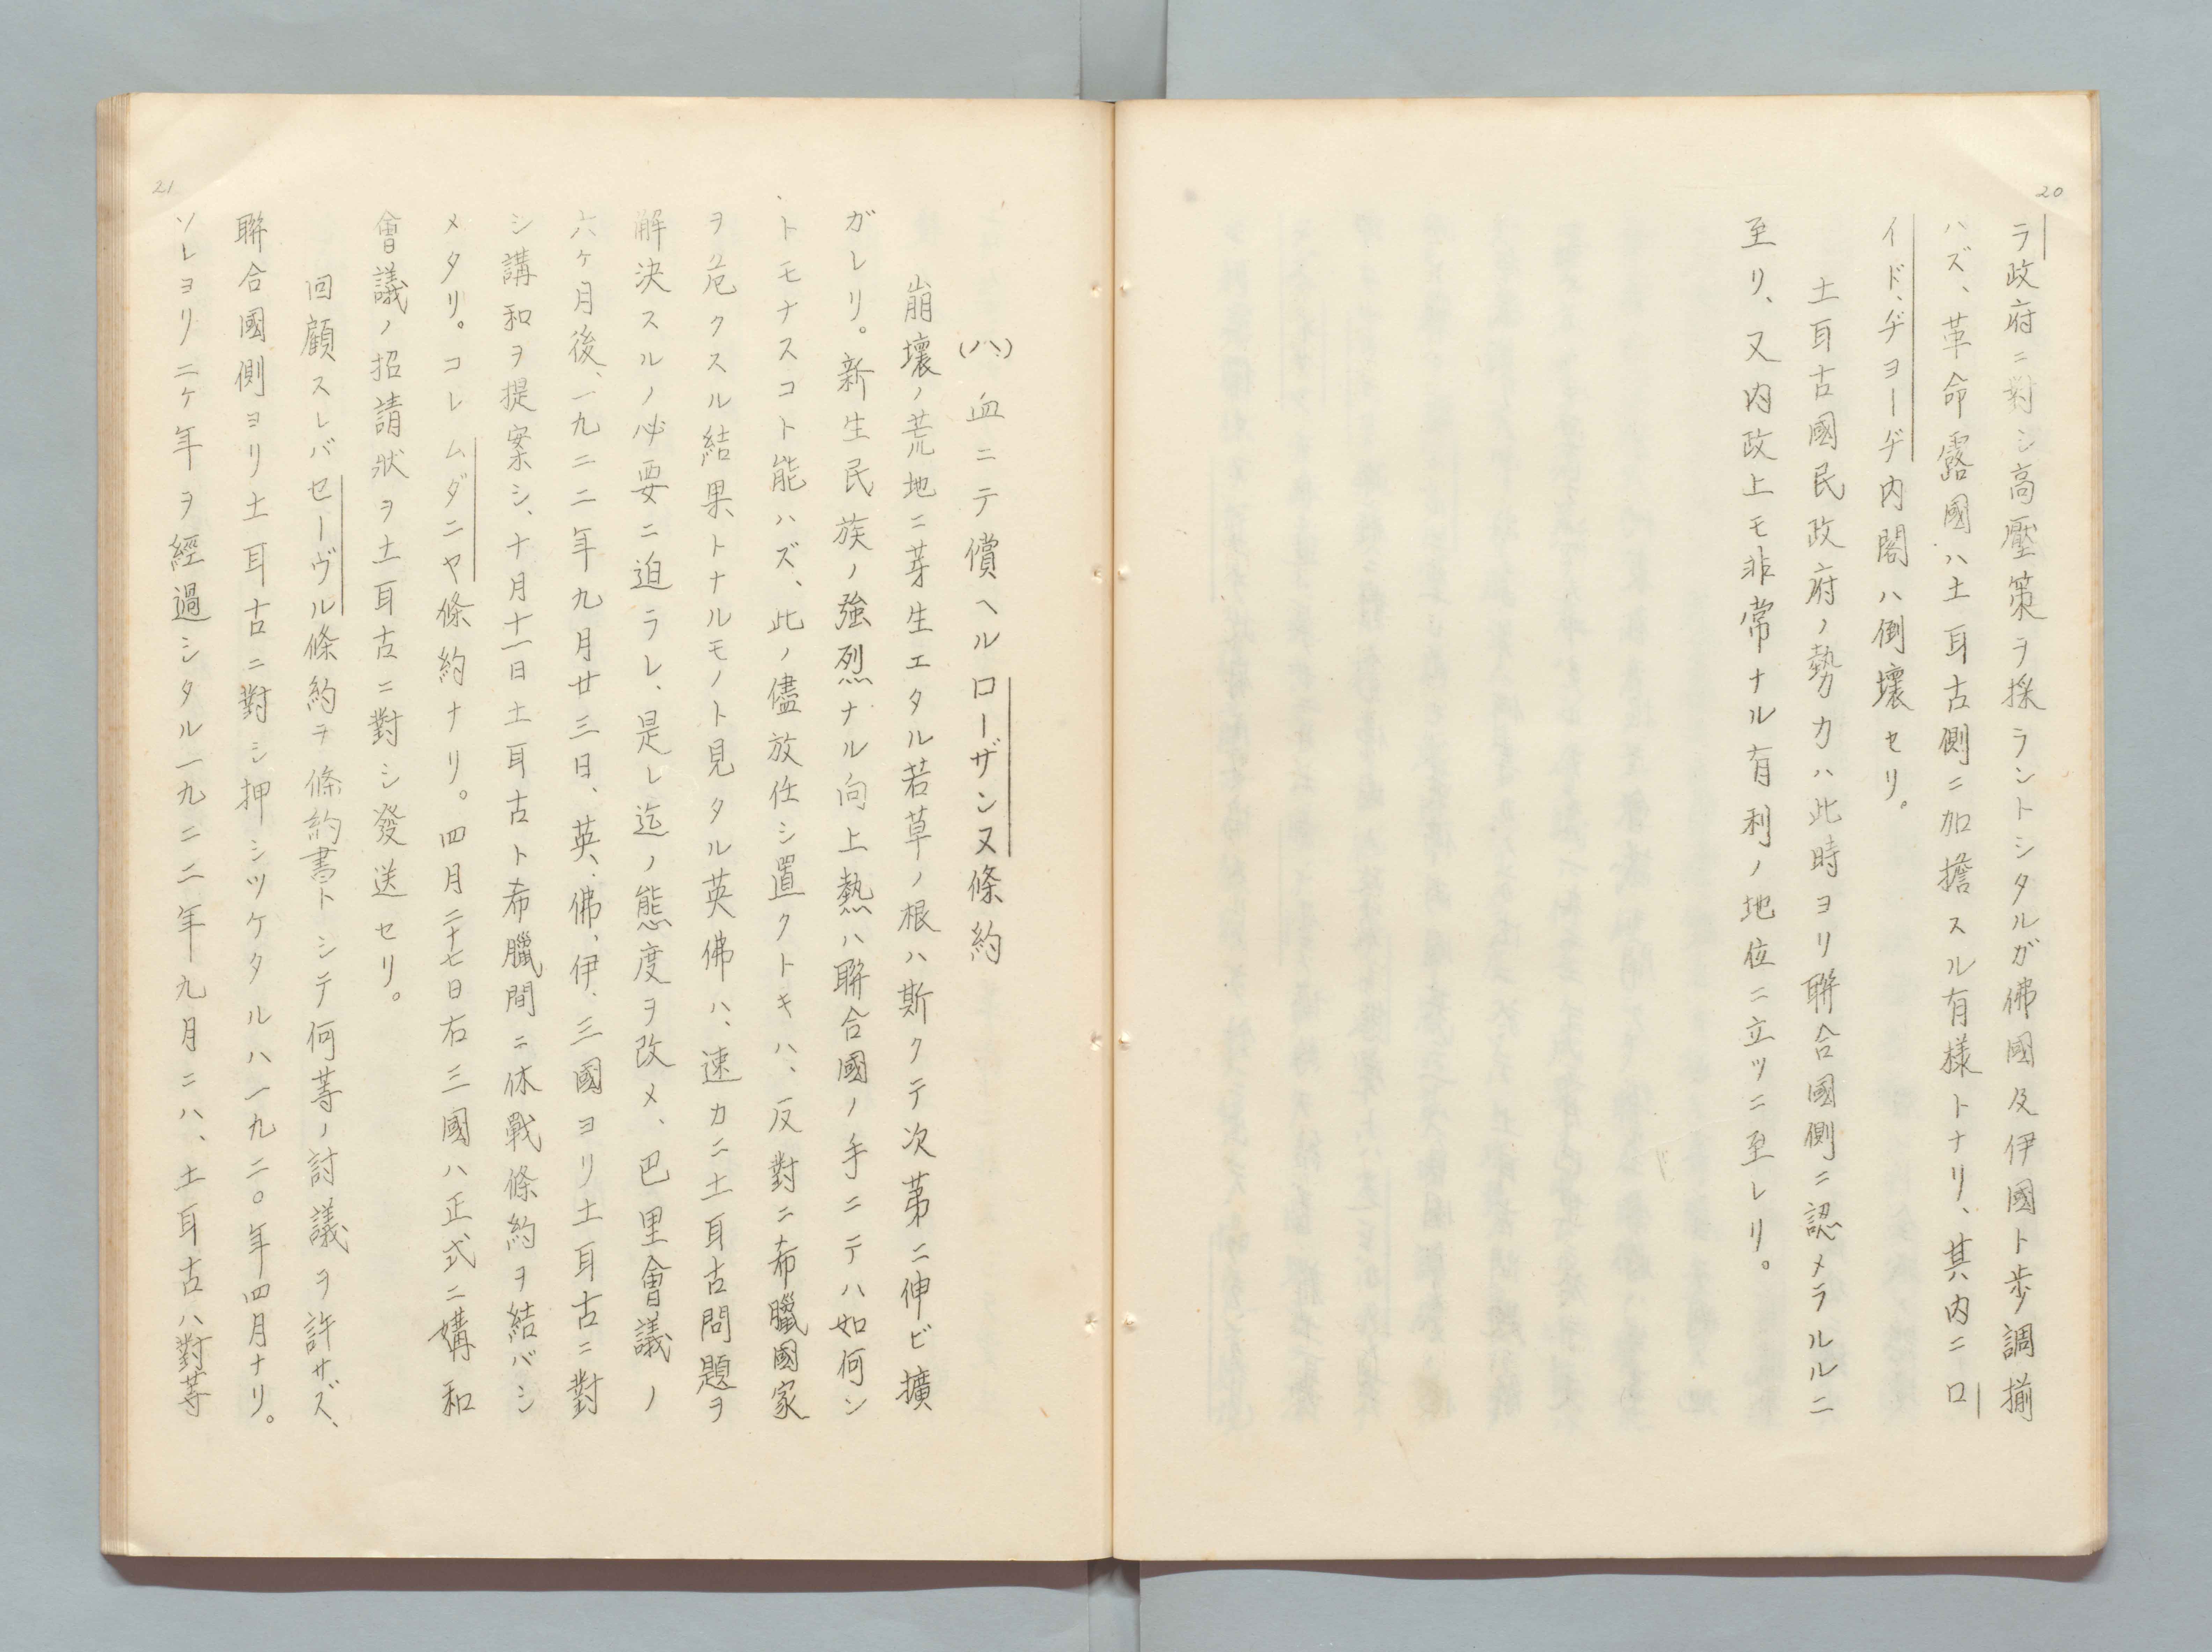 20
ラ政府ニ對シ高壓策ヲ採ラントシタルガ佛國及伊國ト歩調揃
ハズ、革命露國ハ土耳古側ニ加擔スル有樣トナリ、其内ニロ
イド、ヂヨーヂ内閣ハ倒壞セリ。
土耳古國民政府ノ勢力ハ此時ヨリ聯合國側ニ認メラルルニ
至リ、又内政上モ非常ナル有利ノ地位ニ立ツニ至レリ。
(ハ) 血ニテ償ヘルローザンヌ條約
崩壞ノ荒地ニ芽生エタル若草ノ根ハ斯クテ次第ニ伸ビ擴
ガレリ。新生民族ノ強烈ナル向上熱ハ聯合國ノ手ニテハ如何ン
トモナスコト能ハズ、此ノ儘放任シ置クトキハ、反對ニ希臘國家
ヲ危クスル結果トナルモノト見タル英佛ハ、速カニ土耳古問題ヲ
解決スルノ必要ニ迫ラレ、是レ迄ノ態度ヲ改メ、巴里會議ノ
六ヶ月後、一九二二年九月廿三日、英、佛、伊、三國ヨリ土耳古ニ對
シ講和ヲ提案シ、十月十一日土耳古ト希臘間ニ休戰條約ヲ結バシ
メタリ。コレムダニヤ條約ナリ。四月二十七日右三國ハ正式ニ媾和
會議ノ招請狀ヲ土耳古ニ對シ發送セリ。
回顧スレバセーヴル條約ヲ條約書トシテ何等ノ討議ヲ許サズ、
聯合國側ヨリ土耳古ニ對シ押シツケタルハ一九二〇年四月ナリ。
ソレヨリニケ年ヲ經過シタル一九二二年九月ニハ、土耳古ハ對等
21